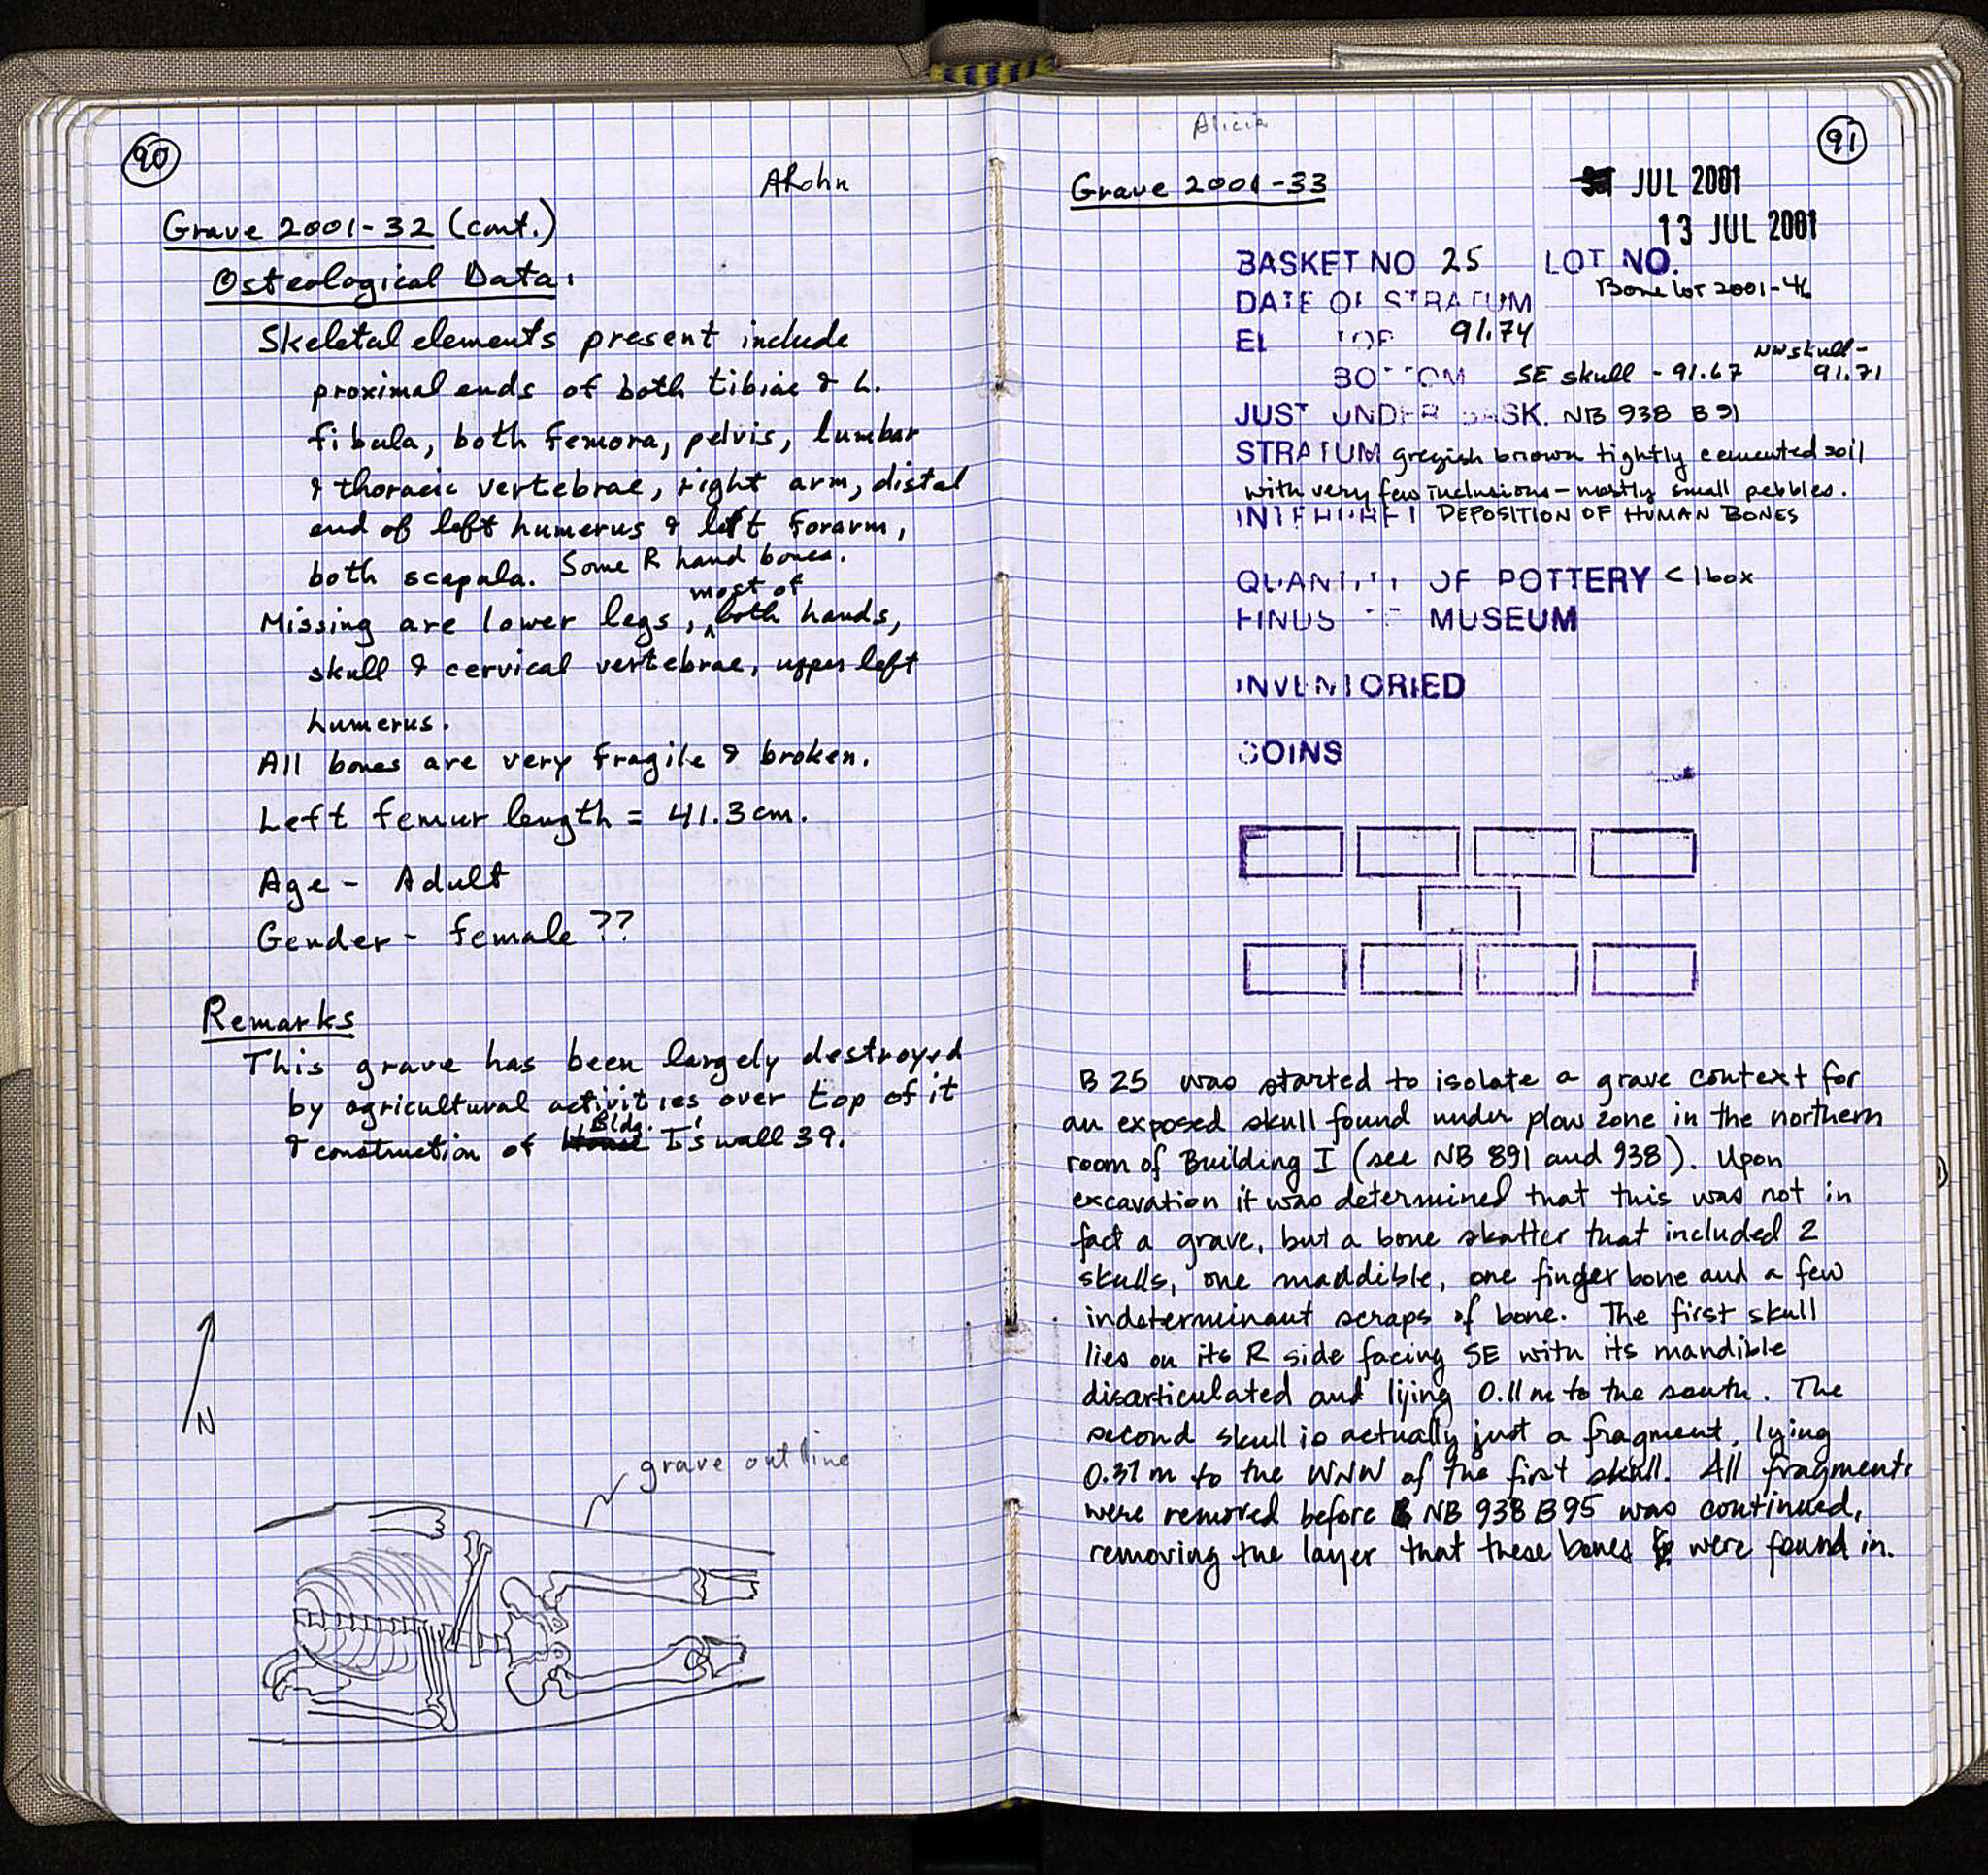 90
ARohn
Grave 2001-32 (cont.)
Osteological Data:
Skeletal elements present include
proximal ends of both tibiae & L.
fibula, both femora, pelvis, lumbar
& thoracic vertebrae, right arm, distal
end of left humerus & left forarm,
both scapula. Some R hand bones.
most of
Missing are lower legs, ^ both hands,
skull & cervical vertebrae, upper left
humerus.
All bones are very fragile & broken.
Left femur length = 41.3 cm.
Age - Adult
Gender - female ??
Remarks
This grave has been largely destroyed
by agricultural activities over top of it
Bldg.
& construction of House I's wall 39.
N
grave outline
Alicia
91
Grave 2001-33
JUL 2001
13 JUL 2001
BASKET NO 25 LOT NO.
Bone lot 2001-46
DATE OF STRATUM
EL TOP 91.74
NW skull -
BOTTOM SE skull - 91.67 91.71
JUST UNDER BASK. NB 938 B 91
STRATUM greyish brown tightly cemented soil
with very few inclusions - mostly small pebbles.
INTERPRET DEPOSITION OF HUMAN BONES
QUANTITY OF POTTERY < 1 box
FINDS MUSEUM
INVENTORIED
COINS
B 25 was started to isolate a grave context for
an exposed skull found under plow zone in the northern
room of Building I (see NB 891 and 938). Upon
excavation it was determined that this was not in
fact a grave, but a bone skatter that included 2
skulls, one maddible, one finger bone and a few
indeterminant scraps of bone. The first skull
lies on its R side facing SE with its mandible
disarticulated and lijing 0.11 m to the south. The
second skull is actually just a fragment, lying
0.37 m to the WNW of the first skull. All fragments
were removed before NB 938 B95 was continued,
removing the layer that these bones were found in.